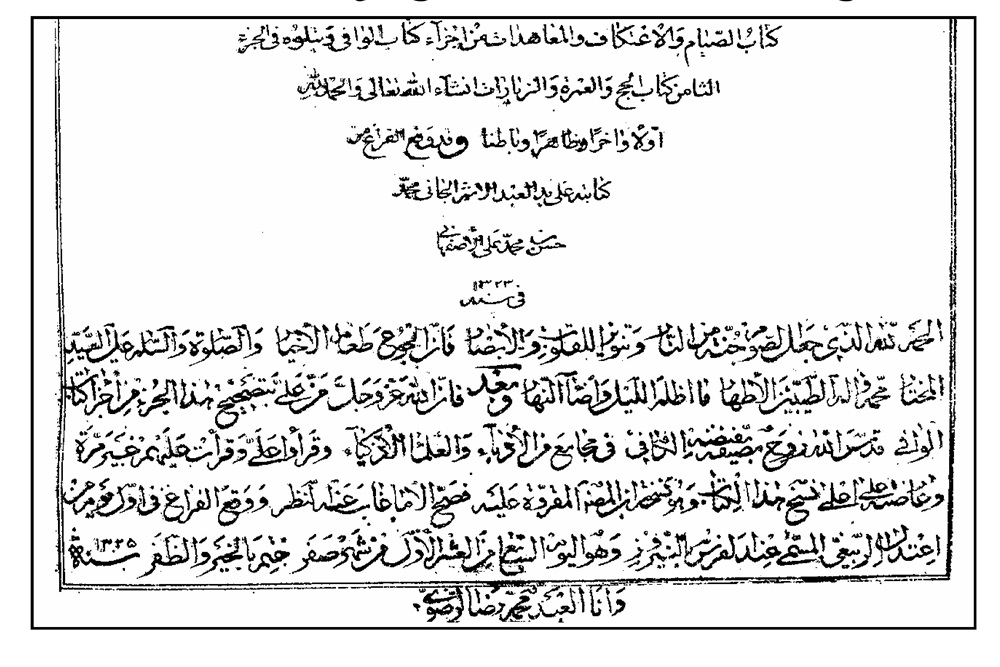 كتاب الصيام والاعتكاف والمعاهدات من اجزاء كتاب الوافى ويتلوه فى الجزء
الثامن كتاب الحج والعمرة والزيارات انشاء الله تعالى والحمد لله
اولا واخرا وظاهرا وباطنا وقد وقع الفراغ من
كتابته على يد العبد الاثم الجانى محمد
حسن بن محمد على الاصفهانى
فى سنه ١٣٢٣
الحمد لله الذى جعل الصوم جنة من النار وتنوير القلوب والابصار فان الجوع طعام الاخيار والصلوة والسلام على السيد
المختار محمد واله الطيبين الاطهار ما اظلم الليل واضاء النهار وبعد فان الله عز وجل من على بتصحيح هذا الجزء من اجزاء كتاب
الوافى قدس الله روح مصنفه فى مجامع من الادباء والعلماء الاذكياء وقراوا على وقرات عليهم غير مرة
على نسخ هذا الكتاب المقروة عليه فصح الا ما غاب عنه النظر ووقع الفراغ فى اول يوم من
اعتدال الربيعى المسمى عند الفرس وهو اليوم السابع من العشر الاول من شهر صفر ختم بالخير والظفر سنة ١٣٢٥
وانا العبد محمد رضا الرضوى